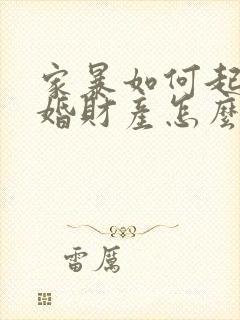 家暴如何起
婚財產怎麼
雷厲